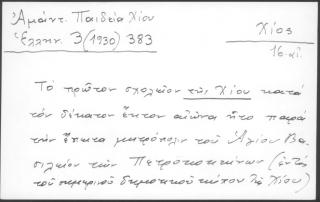 Ἀμάντ. Παιδεία Χίου
Ἑλλην. 3 (1930) 383
Χίος
16 αἰ.
Τὸ πρῶτον σχολεῖον τῆς Χίου κατὰ
τὸν δέκατον ἕκτον αἰῶνα ἦτο παρὰ
τὴν ἔπειτα μητρόπολιν τοῦ Ἁγίου Βα-
σιλείου τῶν Πετροκοκκίνων (ἐντὸς
τοῦ σημερινοῦ δημοτικοῦ κήπου τῆς Χίου)